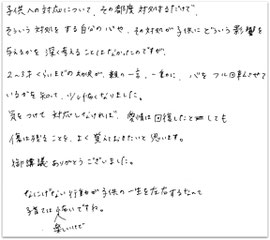 子供への対応について、その都度対処するだけで、
そういう対処をする自分の心や、その対処が子供にどういう影響を
与えるかを深く考えることはなかったのですが、
2～3才くらいまでの大切が、親の一言、一動に、心をフル回転させて
いるかを知って、少し怖くなりました。
気をつけて対応しなければ、愛情は回復したとしても
傷は残ることを、よく覚えておきたいと思います。
御講議ありがとうございました。
なにげない行動が子供の一生を左右するなんて
子育ては怖いですね。
楽しいけど